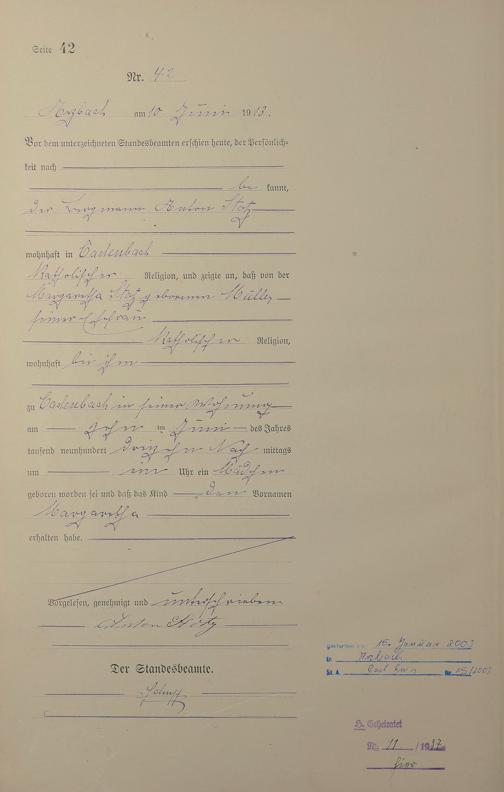 Seite 42
Nr. 42
Arzbach am 10 Juni 1913.
Vor dem unterzeichneten Standesbeamten erschien heute, der Persönlich-
keit nach
be kannt,
der Bergmann Anton Stotz
wohnhaft in Cadenbach
Katholischer Religion, und zeigte an, daß von der
Margaretha Stotz geborenen Müller
seiner Ehefrau
Katholischer Religion,
wohnhaft bei ihm
zu Cadenbach in seiner Wohnung
am im Juni des Jahres
tausend neunhundert dreizehn Nach mittags
um Uhr ein Mädchen
geboren worden sei und daß das Kind den Vornamen
Margaretha
erhalten habe.
Vorgelesen, genehmigt und unterschrieben.
Anton Stotz
Der Standesbeamte.
Gestorben am 15. Januar 2003
in Arzbach
St. A. Bad Ems Nr. 15/2003
H. Geheiratet
Nr. 11 / 1937
hier